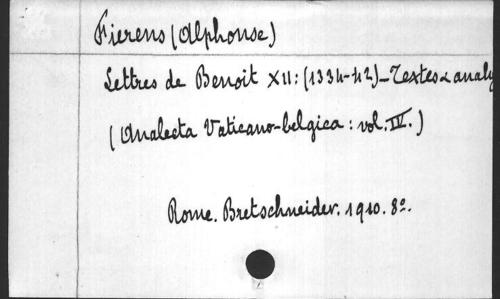 Fierens (Alphonse)
Lettres de Benoit XII: (1334-42)_Textes & analy
(Analecta Vaticano-belgica: vol. IV.)
Rome. Bretschneider. 1910. 8º.